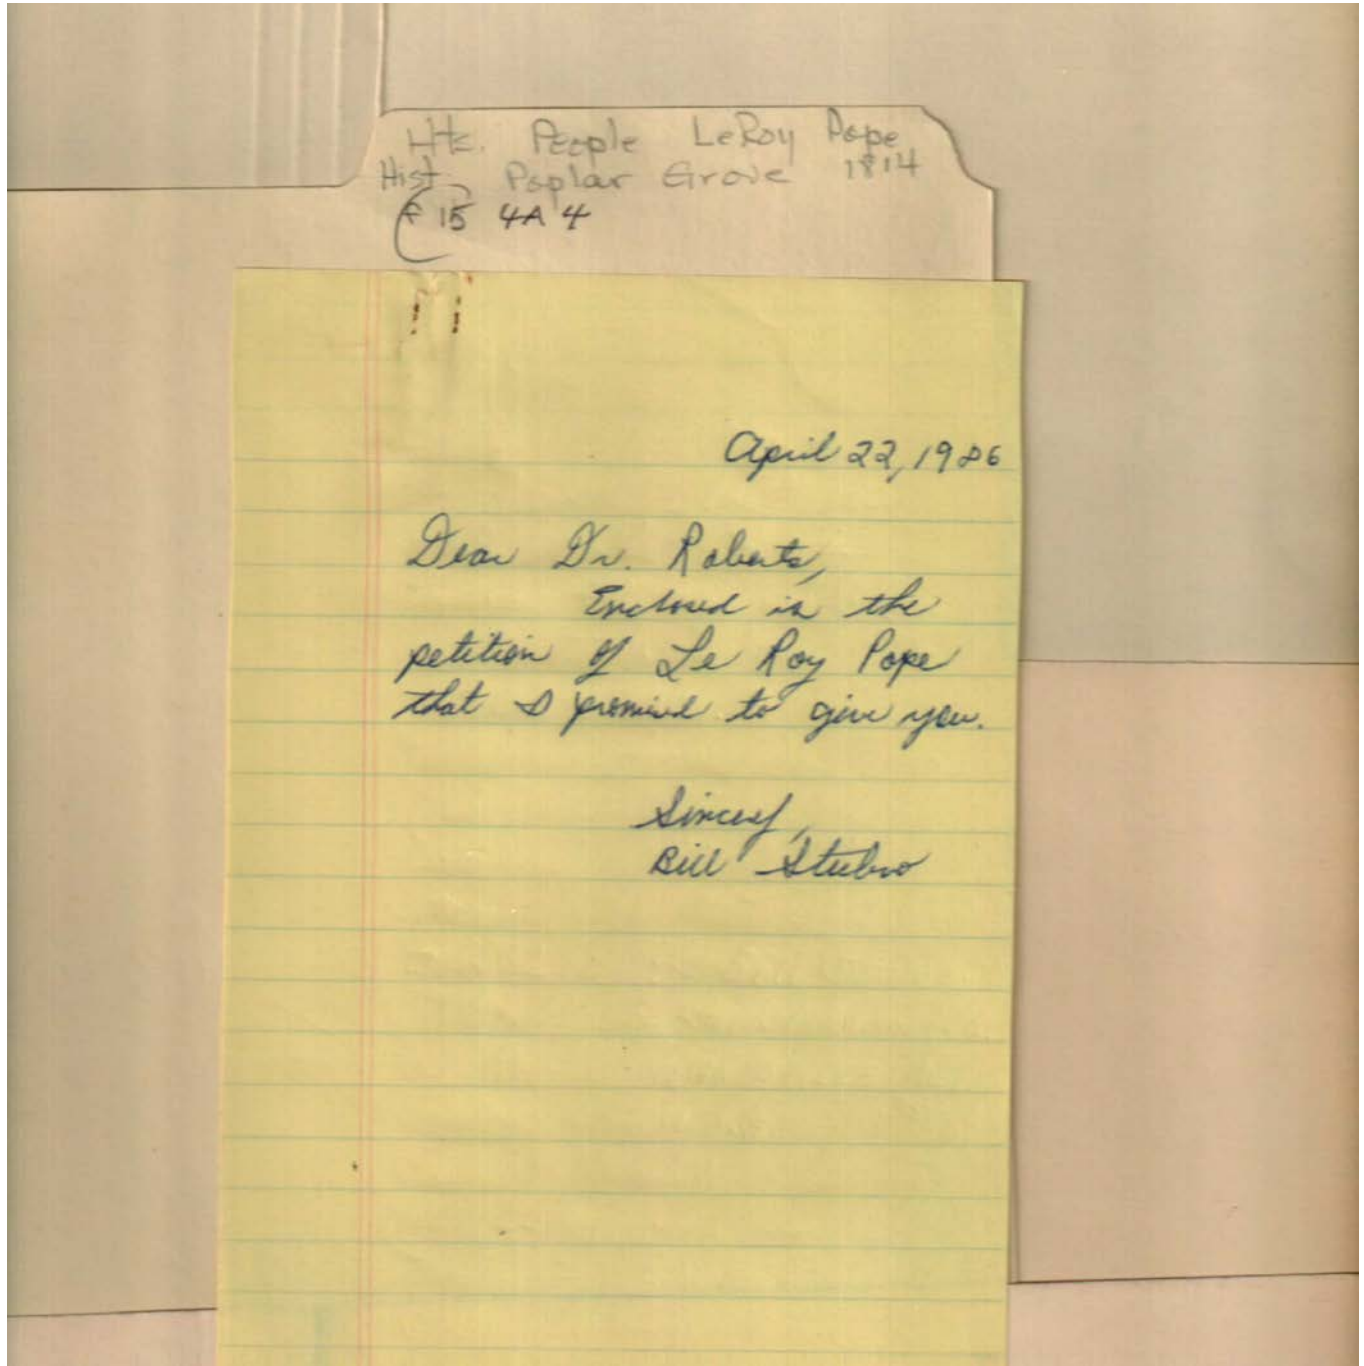 Hts. People LeRoy Pope
Hist. Poplar Grove 1814
F 15 4A 4
April 22, 1986
Dear Dr. Roberts,
Enclosed is the
petition of Le Roy Pope
that I promised to give you.
Sincerely,
Bill Stubno